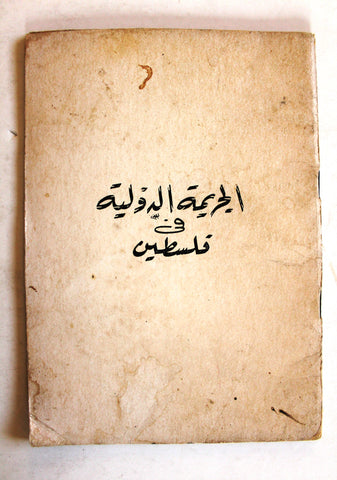 الجريمة الدولية
في
فلسطين